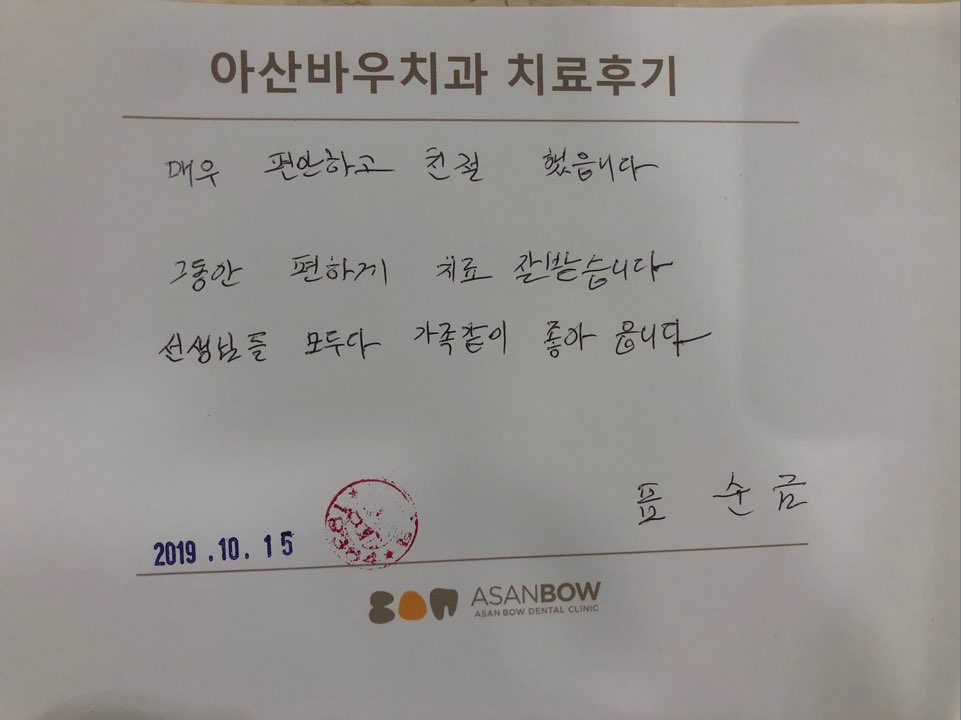 아산바우치과 치료후기
매우 편안하고 친절 했읍니다
그동안 편하게 치료 잘받습니다
선생님들 모두다 가족같이 좋아 읍니다
표 순금
2019.10.15
ASANBOW
ASAN BOW DENTAL CLINIC